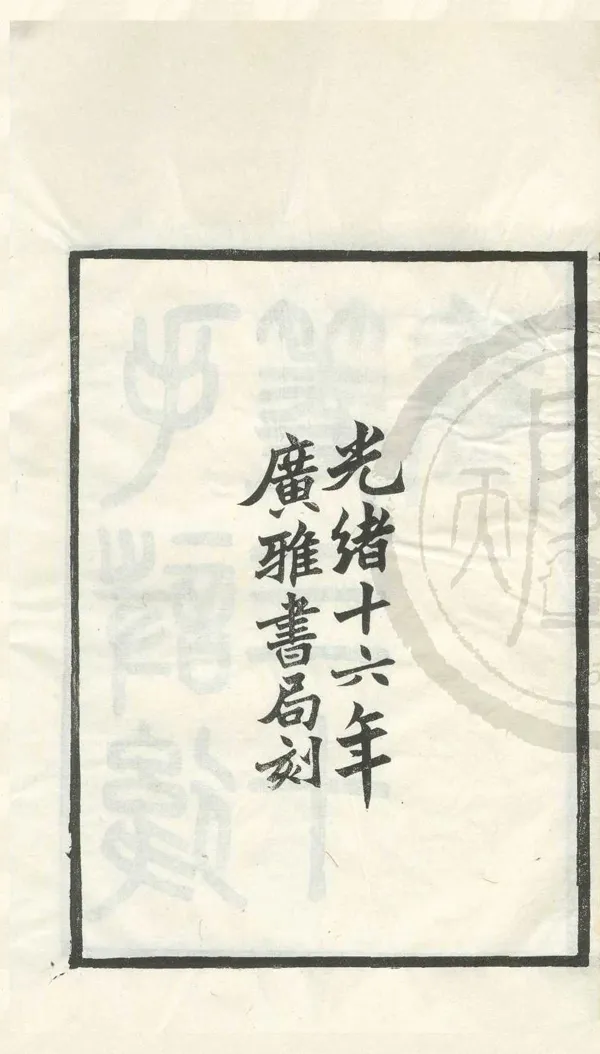 光緒十六年
廣雅書局刻